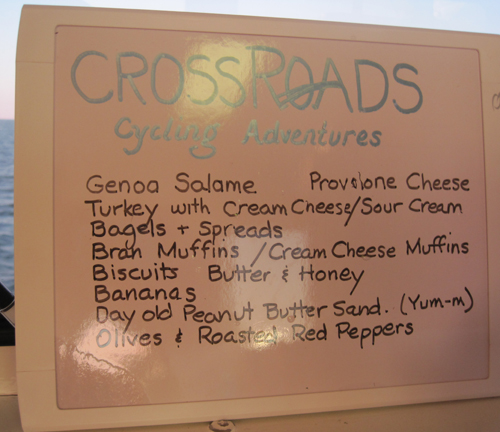 CROSSROADS
Cycling Adventures
Genoa Salame Provolone Cheese
Turkey with Cream Cheese/Sour Cream
Bagels + Spreads
Bran Muffins / Cream Cheese Muffins
Biscuits Butter & Honey
Bananas
Day old Peanut Butter Sand. (Yum-m)
Olives & Roasted Red Peppers